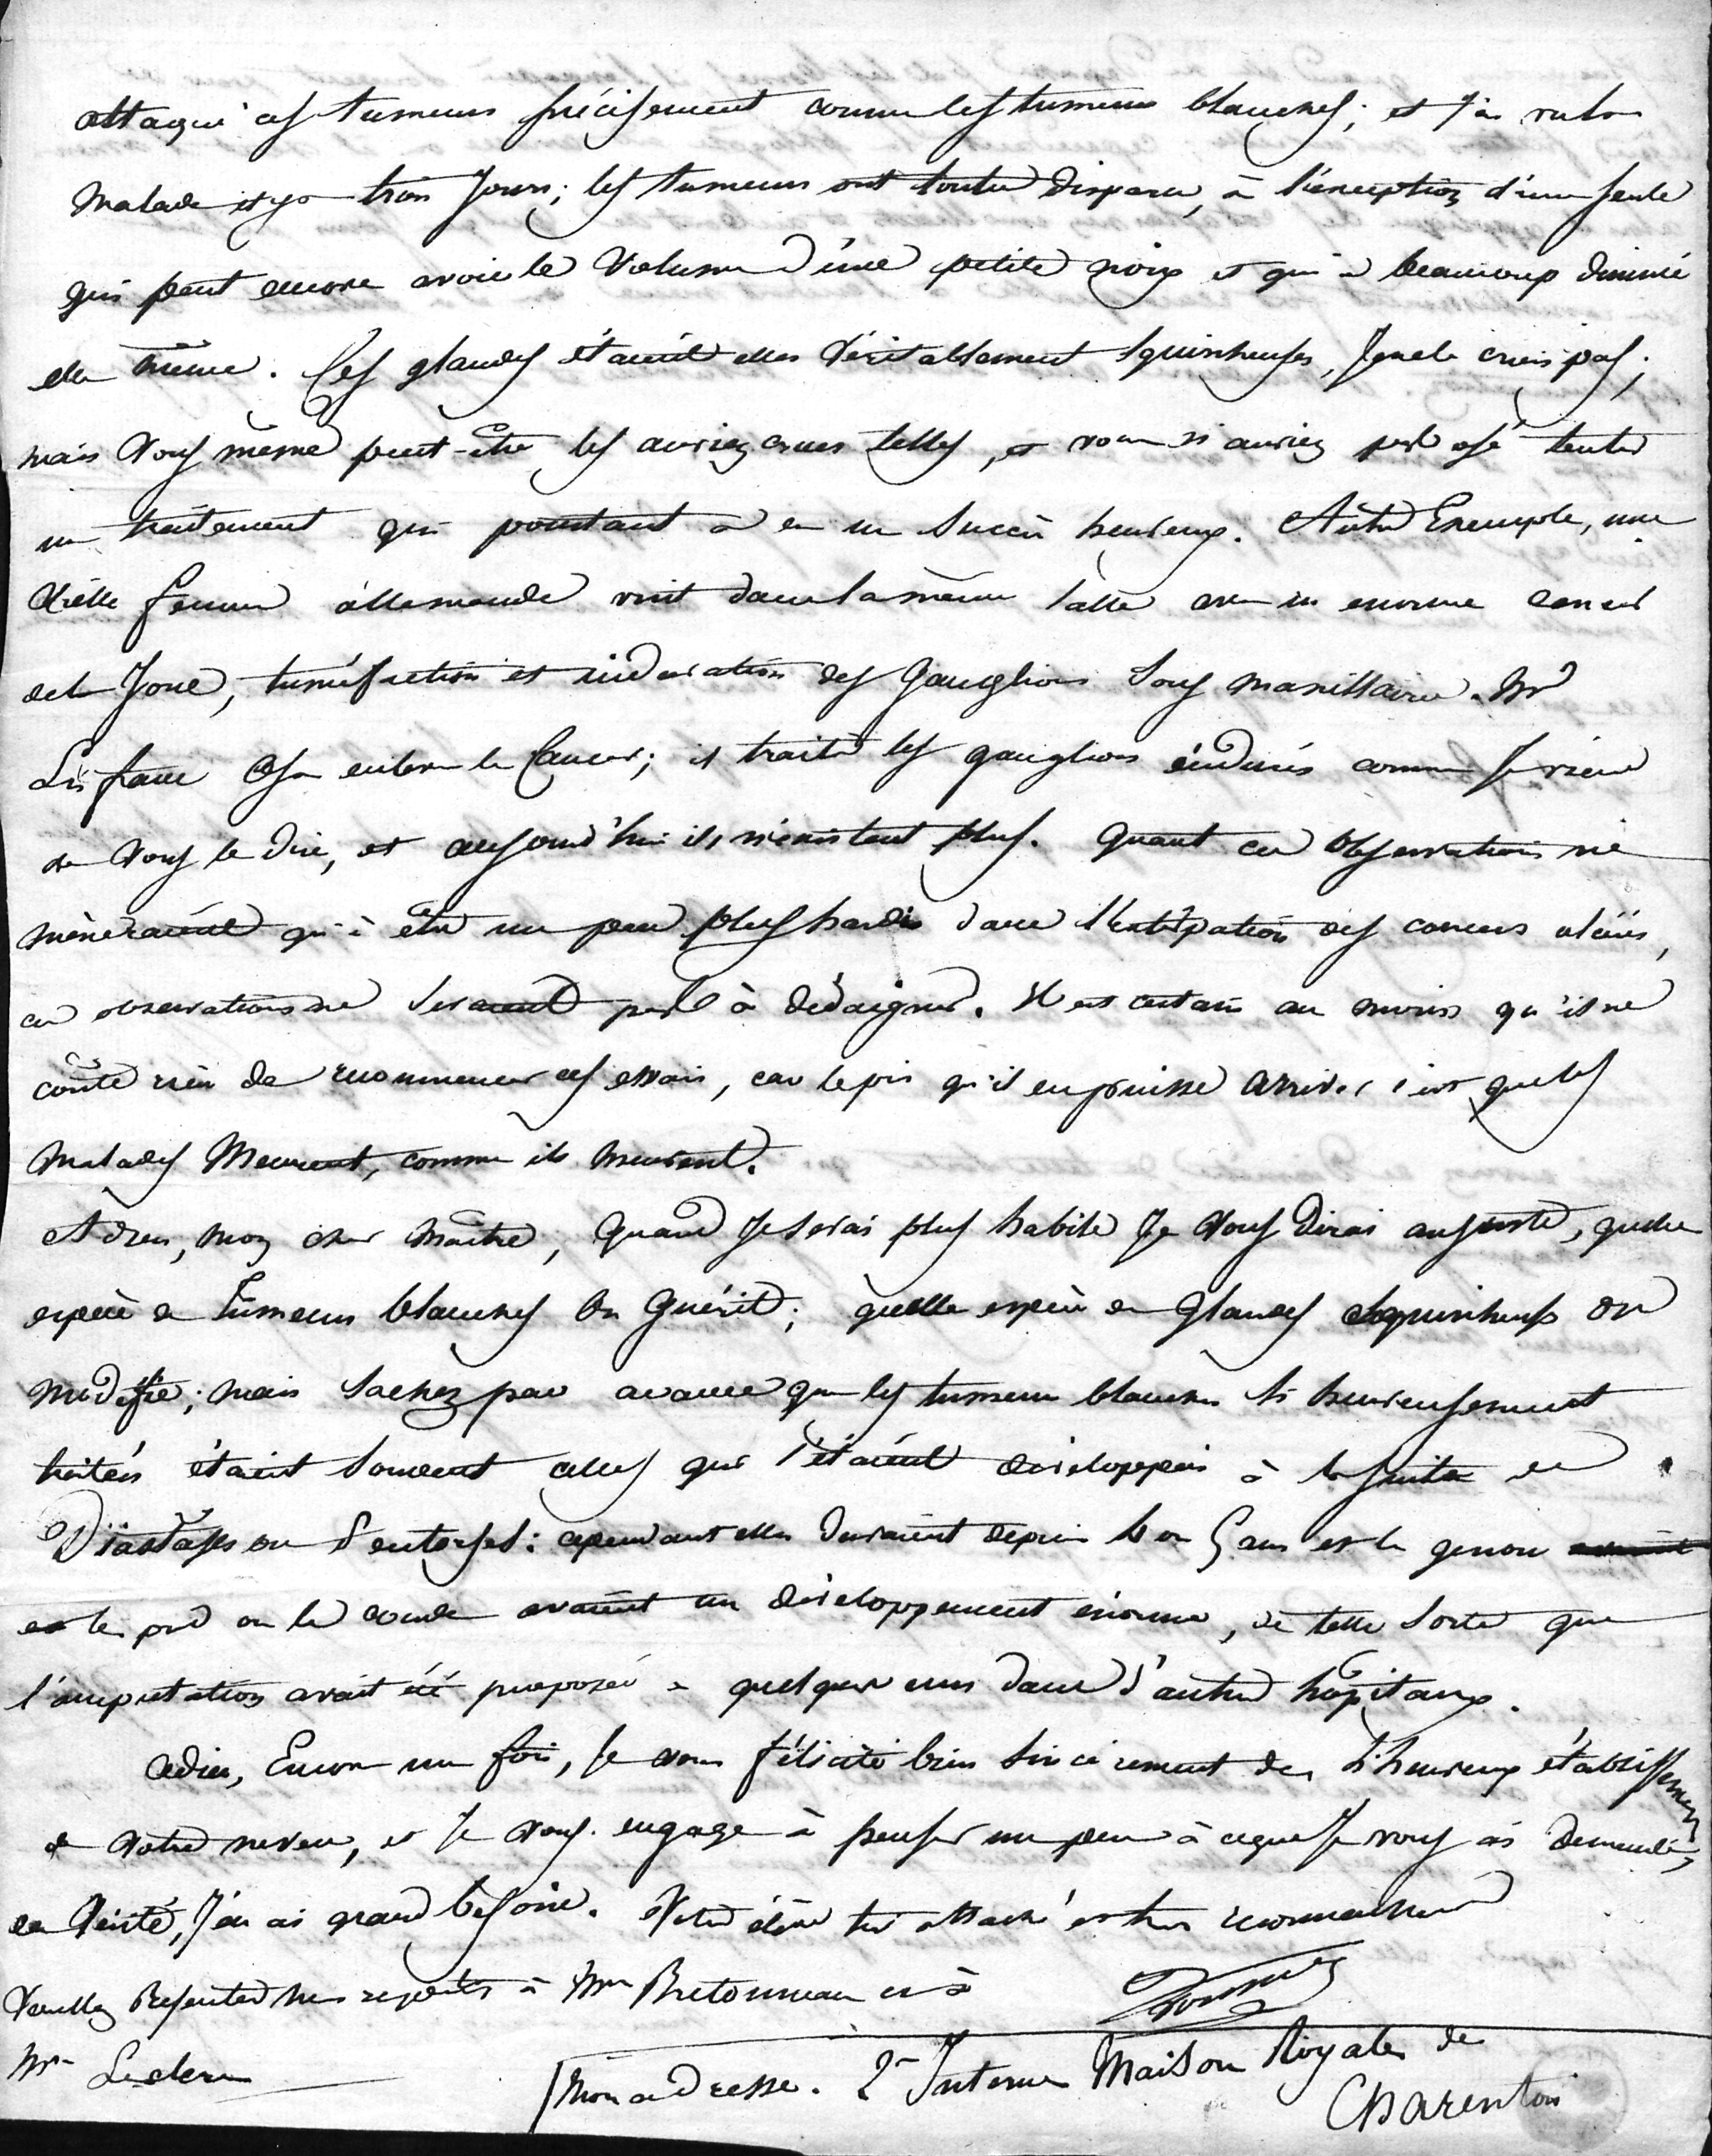 attaqué ces tumeurs précisement comme les tumeurs blanches; et j'ai vu la
malade il y a trois jours; les tumeurs ont toutes disparu, à l'exception d'une seule
qui peut encore avoir le volume d'une petite noix et qui a beaucoup diminué
elle même. Ces glandes étaient elles véritablement squirrheuses, je ne le crois pas;
mais vous même peut-être les auriez crues telles, et vous n'auriez pas osé tenter
un traitement qui pourtant a eu un succès heureux. Autre Exemple, une
vieille femme allemande vint dans la même salle avec un enorme cancer
de la joue, tuméfaction et induration des ganglions sous maxillaires. Mr
Lisfranc osa enlever le Cancer; il traita les ganglions indurés comme je viens
de vous le dire, et aujourd'hui ils n'existent plus. Quant ces observations ne
mèneraient qu'à être un peu plus hardis dans l'extirpation des cancers ulcérés,
ces observations ne seraient pas à dédaigner. Il est certain au moins qu'il ne
coûte rien de recommencer ces essais, car le pis qu'il en puisse arriver c'est que les
malades Meurent, comme ils meurent.
Adieu, mon cher maître, quand je serai plus habile je vous dirai au juste, quelle
espèce de tumeurs blanches on guérit; quelle espèce de glandes squirrheuses on
modifie; mais sachez par avance que les tumeurs blanches si heureusement
traitées étaient souvent celles qui s'étaient développées à la suite de
Diastases ou d'entorses: cependant elles duraient depuis 4 ou 5 ans et le genou
et le pied ou le coude avaient un développement énorme, de telle sorte que
l'amputation avait été proposée à quelques uns dans d'autres hôpitaux.
adieu, Encore une fois, je vous félicite bien sincèrement de l'heureux établissement
de votre neveu, et je vous engage à penser un peu à ce que je vous ai demandé,
en vérité, j'en ai grand besoin. Votre élève très attaché et très reconnaissant
Veuillez Présenter mes respects à Mme Bretonneau et à
Trousseau
Mme Leclerc
mon adresse. 2e Interne Maison Royale de
Charenton